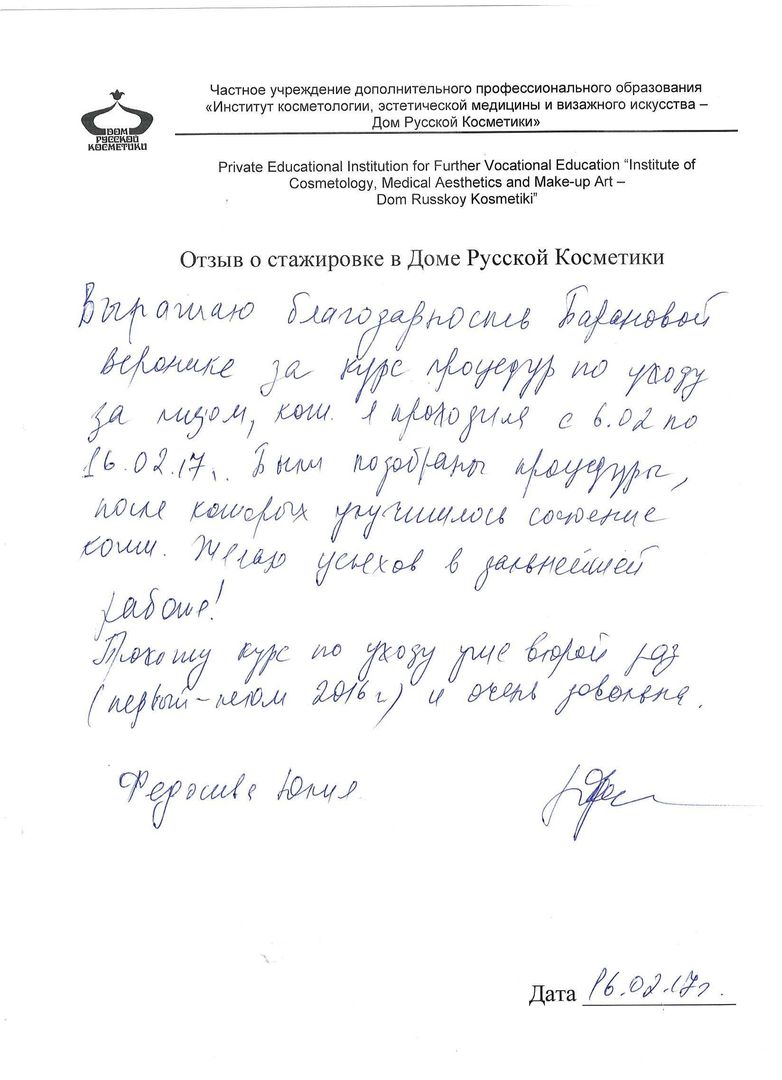 Частное учреждение дополнительного профессионального образования
«Институт косметологии, эстетической медицины и визажного искусства –
Дом Русской Косметики»
ДОМ
РУССКОЙ
КОСМЕТИКИ
Private Educational Institution for Further Vocational Education “Institute of
Cosmetology, Medical Aesthetics and Make-up Art –
Dom Russkoy Kosmetiki”
Отзыв о стажировке в Доме Русской Косметики
Выражаю благодарность Барановой
Веронике за курс процедур по уходу
за лицом, кот. я проходила с 6.02 по
16.02.17г. Были подобраны процедуры,
после которых улучшилось состояние
кожи. Желаю успехов в дальнейшей
работе!
Прохожу курс по уходу уже второй раз
(первый – летом 2016 г) и очень довольна.
Юлия
Дата 16.02.17г.